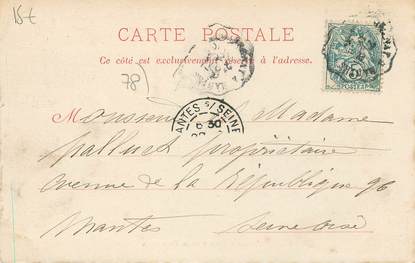 15 €
CARTE POSTALE
Ce côté est exclusivement réservé à l'adresse.
78)
Monsieur & Madame
MANTES S/ SEINE
6 30
Palluet propriétaire
avenue de la République 96
Mantes Seine Oise
5
POSTES